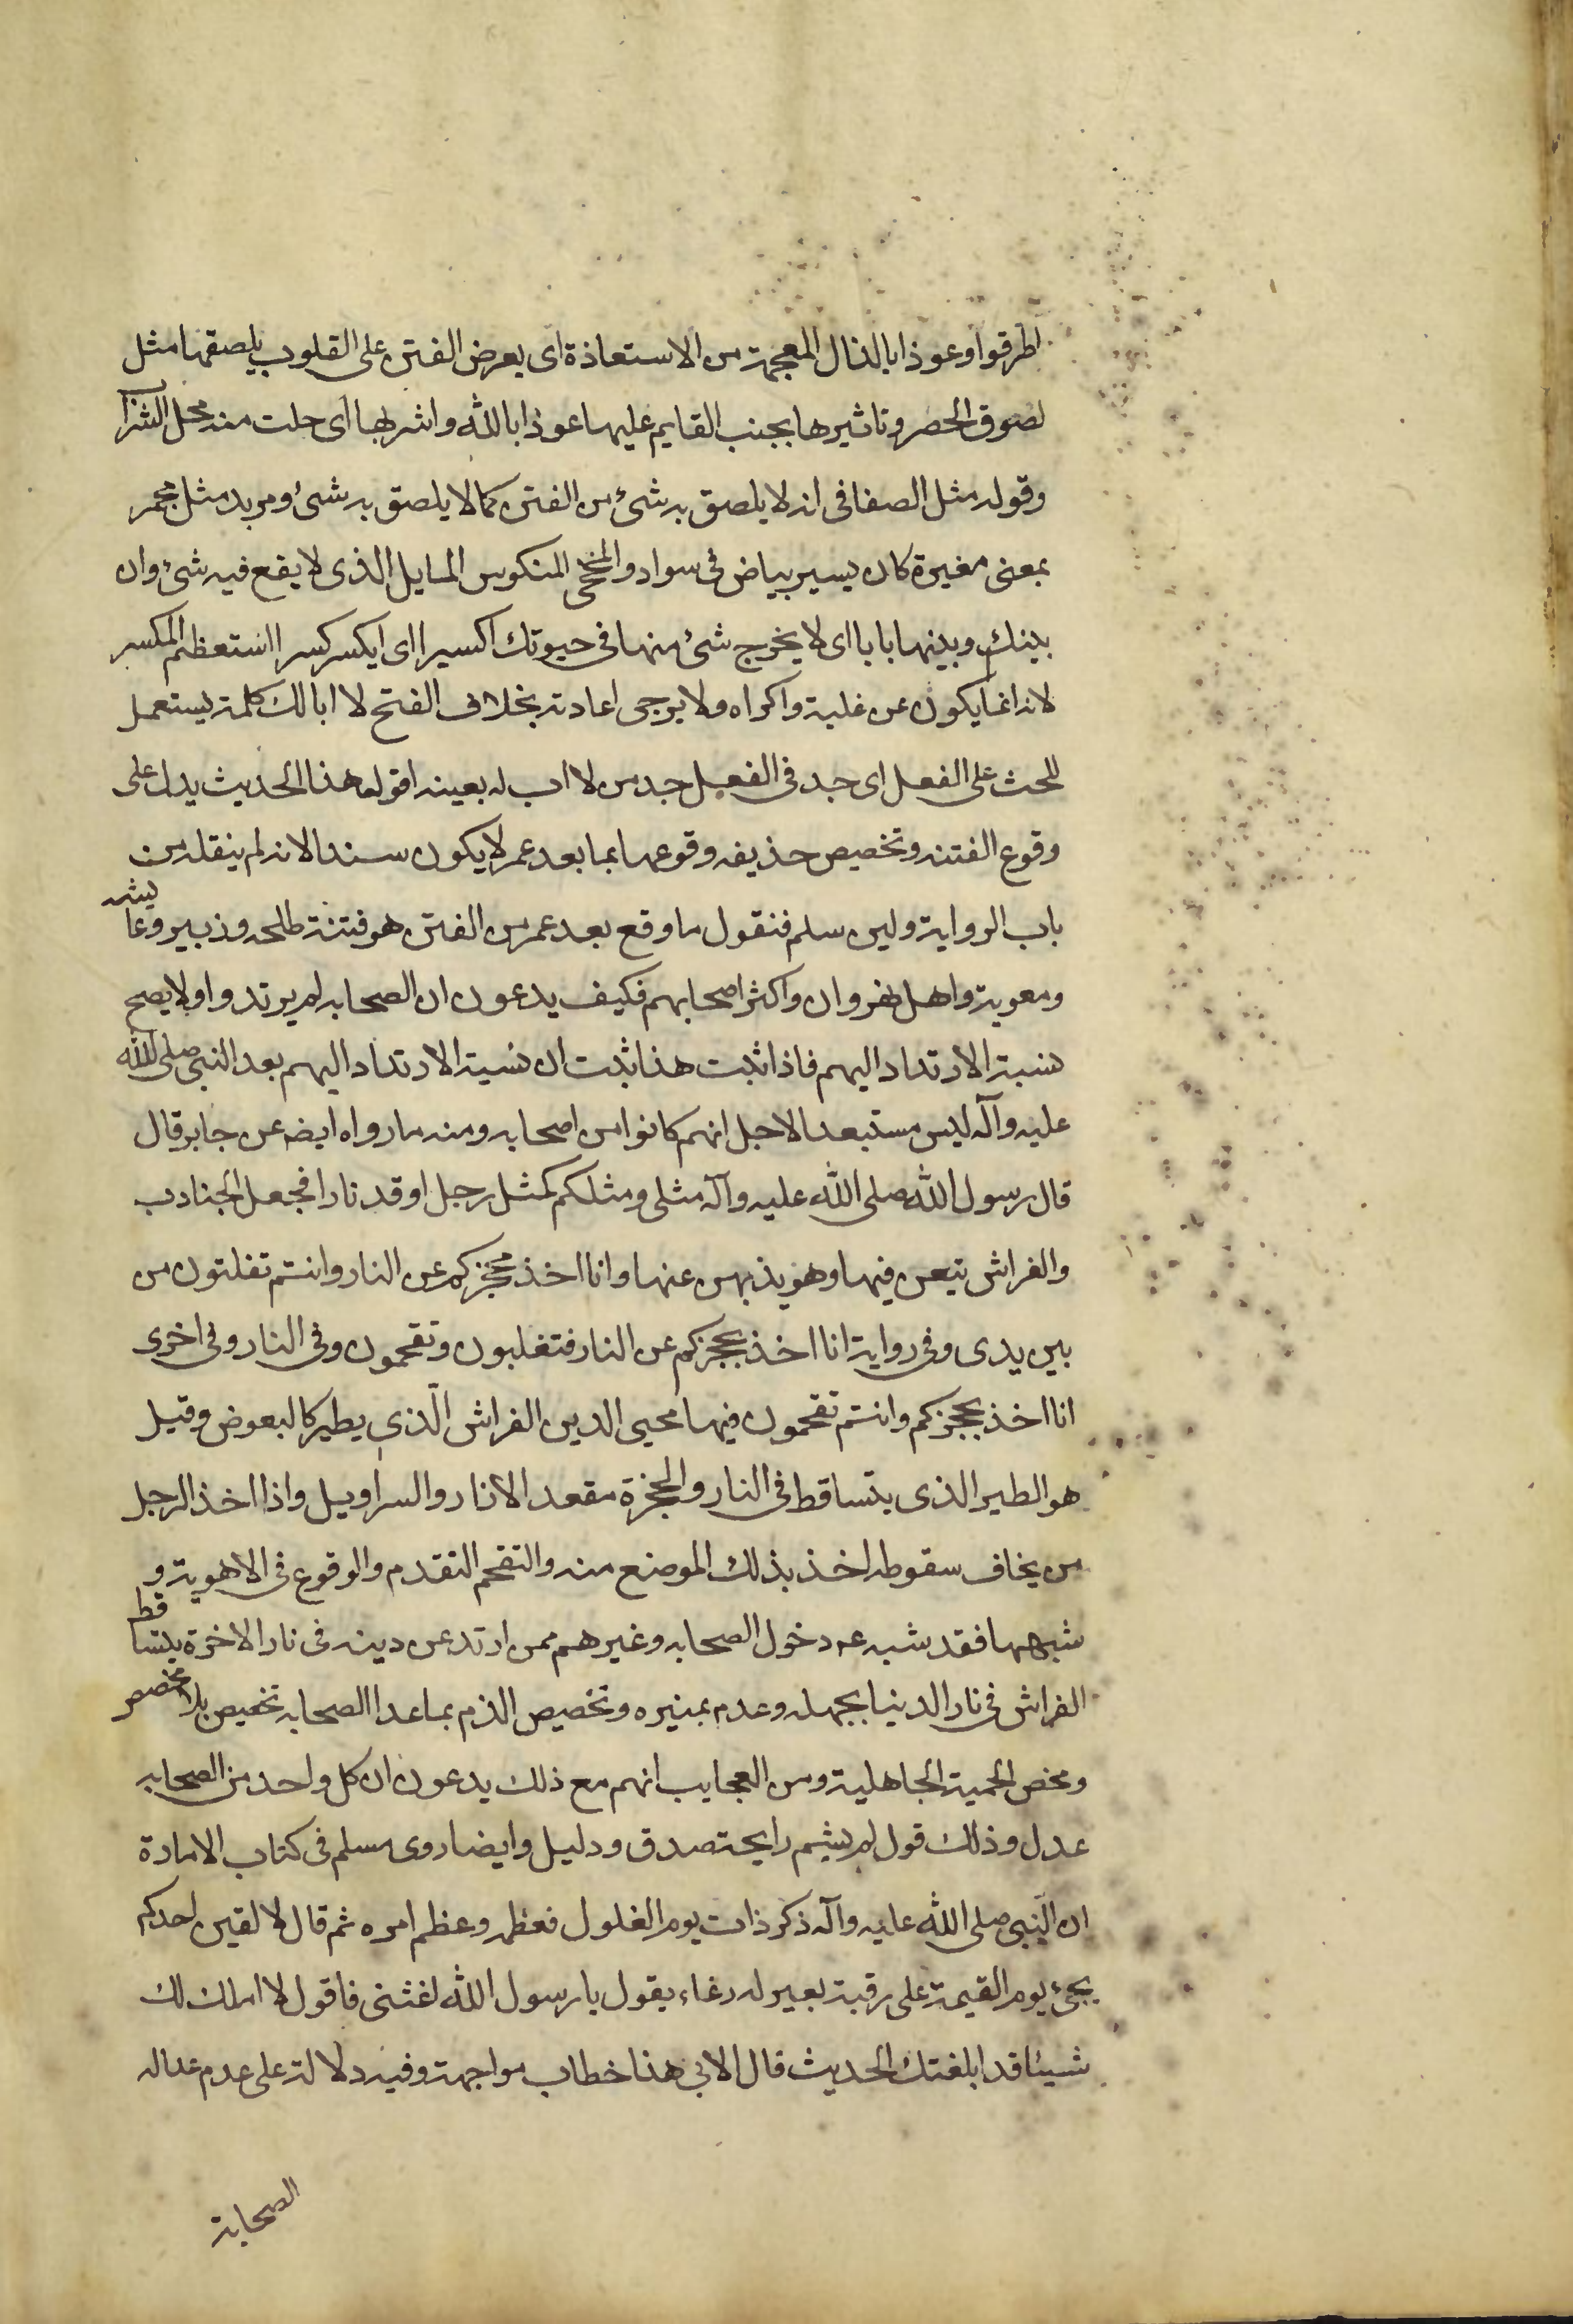 اطرقوا وعوذا بالذال المعجمة من الاستعاذة اى يعرض الفتن على القلوب يلصقها مثل
لصوق الحصر وتاثيرها بجنب القايم عليها عوذا بالله واشربها اى حلت منه محل الشراب
وقوله مثل الصفا فى انه لا يلصق به شئ من الفتن كما لا يلصق به شئ ومربد مثل محمر
بمعنى مغيرة كان يسير بياض فى سواد والمجخى المنكوس المايل الذى لا يقع فيه شئ وان
بينك وبينها بابا اى لا يخرج شئ منها فى حيوتك اكسيرا اى ايكسر كسرا استعظم المكسر
لانه انما يكون عن غلبة واكراه ولا يرجى اعادته بخلاف الفتح لا ابا لك كلمة يستعمل
للحث على الفعل اى جد فى الفعل جد من لا اب له بعينه اقول هذا الحديث يدل على
وقوع الفتنه وتخصيص حذيفه وقوعها بما بعد عمر لا يكون سندا لانه لم ينقله من
باب الرواية ولين سلم فنقول ما وقع بعد عمر من الفتن هو فتنة طلحه وزبير وعايشه
ومعوية واهل نهروان واكثر اصحابهم فكيف يدعون ان الصحابه لم يرتدوا ولا يصح
نسبة الارتداد اليهم فاذا ثبت هذا ثبت ان نسبة الارتداد اليهم بعد النبى صلى الله
عليه وآله ليس مستبعدا لاجل انهم كانوا من اصحابه ومنه ما رواه ايضه عن جابر قال
قال رسول الله صلى الله عليه وآله مثلى ومثلكم كمثل رجل اوقد نارا فجعل الجنادب
والفراش يتعن فيها وهو يذبهن عنها وانا اخذ بحجزكم عن النار وانتم تفلتون من
بين يدى وفى رواية انا اخذ بحجزكم عن النار فتغلبون وتقحمون وفى النار وفى اخرى
انا اخذ بحجزكم وانتم تقحمون فيها محيى الدين الفراش الّذى يطير كالبعوض وقيل
هو الطير الذى يتساقط فى النار والحجزة مقعد الازار والسراويل واذا اخذ الرجل
من يخاف سقوطه اخذ بذلك الموضع منه والتقحم التقدم والوقوع فى الاهوية و
شبهها فقد شبه عم دخول الصحابه وغيرهم ممن ارتد عن دينه فى نار الاخرة بتساقط
الفراش فى نار الدنيا بجهله وعدم بمنيره وتخصيص الذم بما عدا الصحابه تخصيص بلا مخصص
ومحض الحمية الجاهلية ومن العجايب انهم مع ذلك يدعون ان كل واحد من الصحابه
عدل وذلك قول لم يشم رايحة صدق ودليل وايضا روى مسلم فى كتاب الامارة
ان النّبى صلى الله عليه وآله ذكر ذات يوم الغلول فعظمه وعظم امره ثم قال لا لقين احدكم
يجئ يوم القيمة على رقبة بعير له رغاء يقول يا رسول الله اغثنى فاقول لا املك لك
شيئا قد ابلغتك الحديث قال الابى هذا خطاب مواجهة وفيه دلالة على عدم عداله
الصحابة